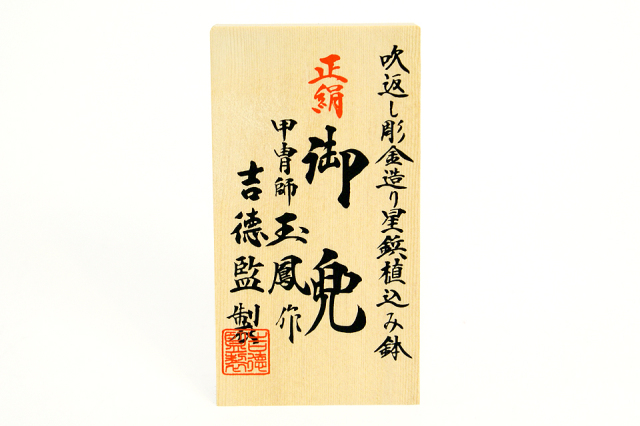 吹返し彫金造り星鋲植込み鉢
正絹
御兜
甲冑師玉鳳作
吉德監製
吉德監製